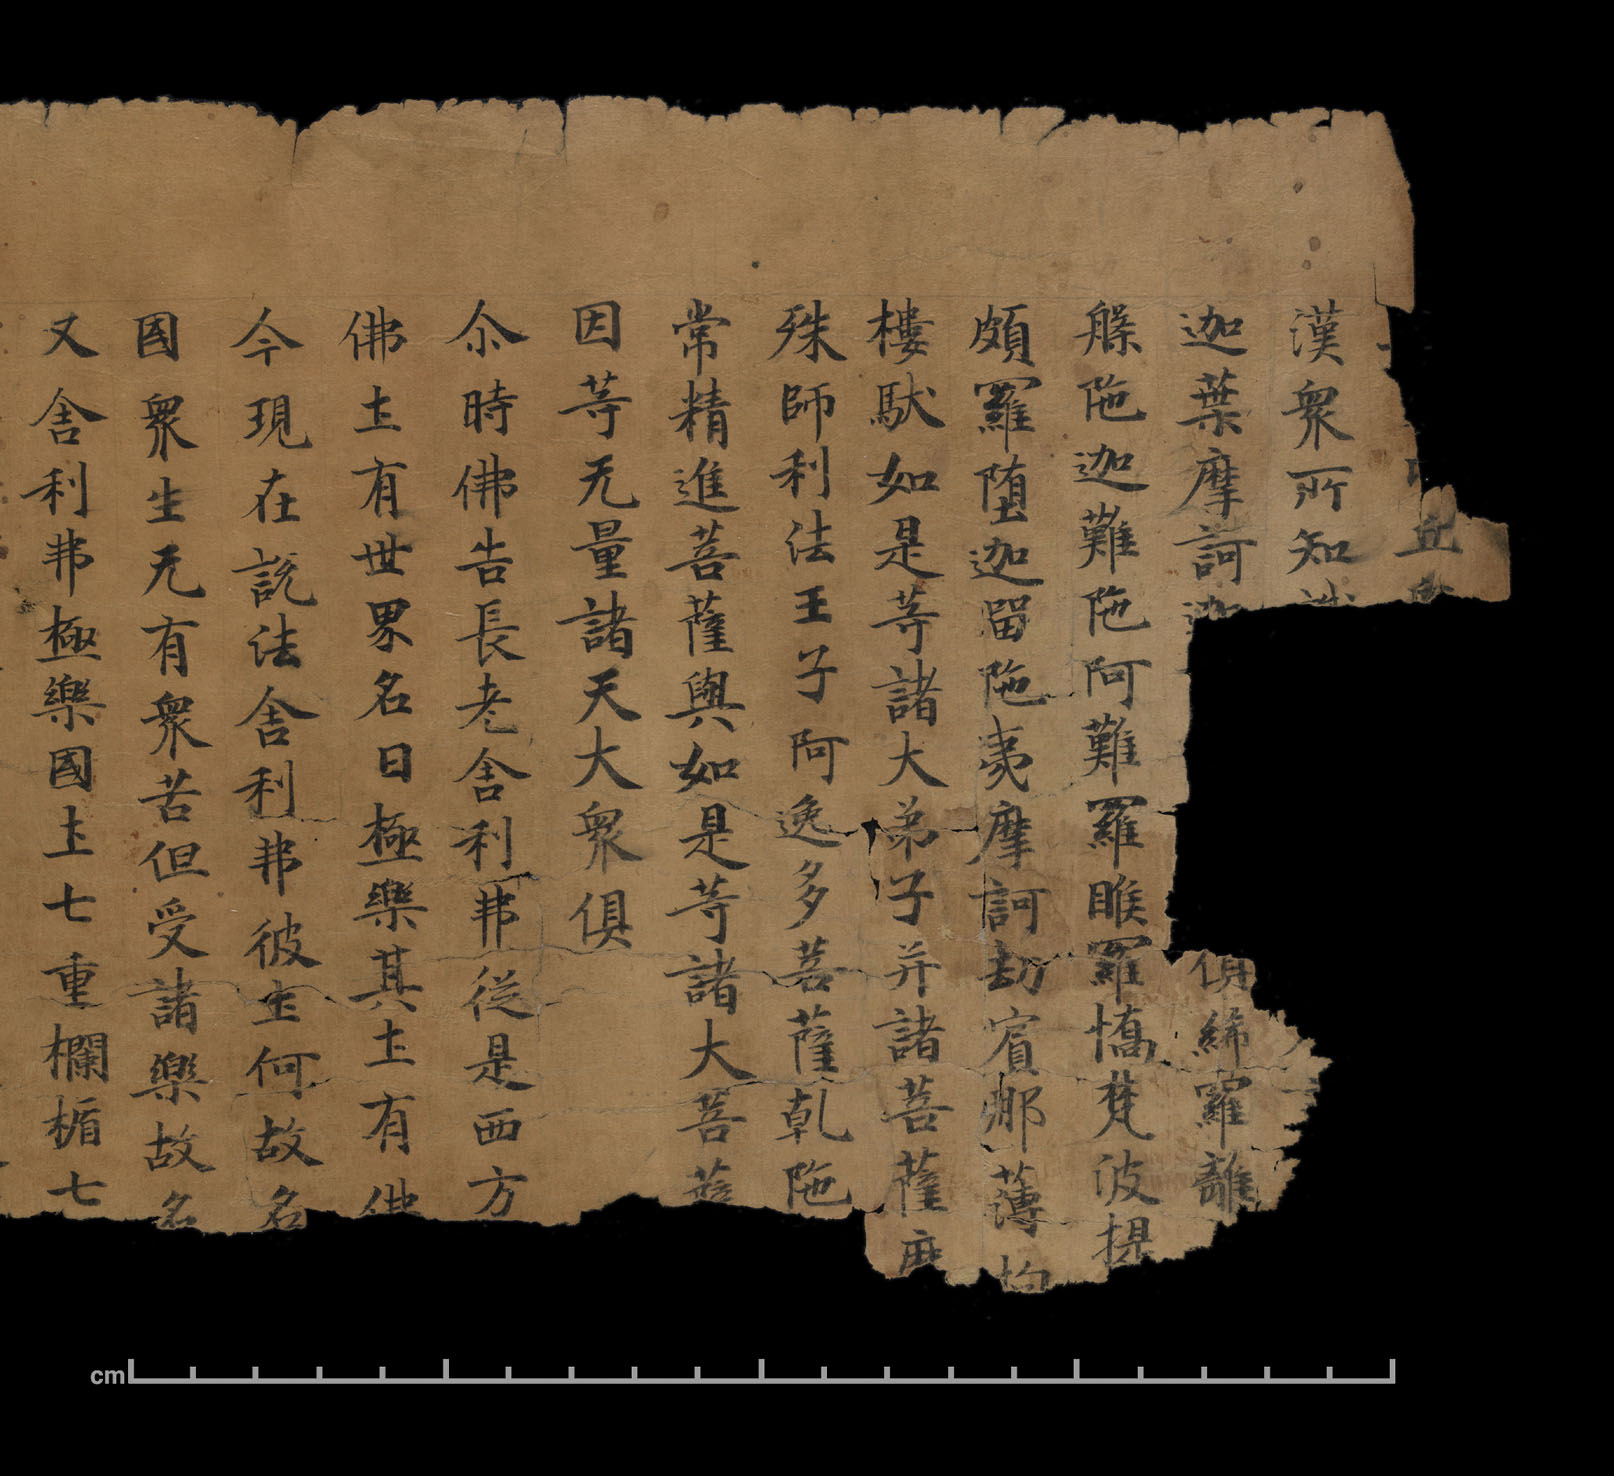 丘
漢衆所知識
迦葉摩訶迦
俱絺羅離
槃陁迦難陁阿難羅睺羅憍梵波提
頗羅堕迦留陁夷摩訶劫賓那薄拘
樓馱如是䓁諸大弟子并諸菩薩
殊師利法王子阿逸多菩薩乾陁
常精進菩薩與如是䓁諸大菩薩
因䓁无量諸天大衆俱
尒時佛告長老舍利弗從是西方
佛土有世界名曰極樂其土有佛
今現在說法舍利弗彼土何故名
國衆生无有衆苦但受諸樂故名
又舍利弗極樂國土七重欄楯七
cm